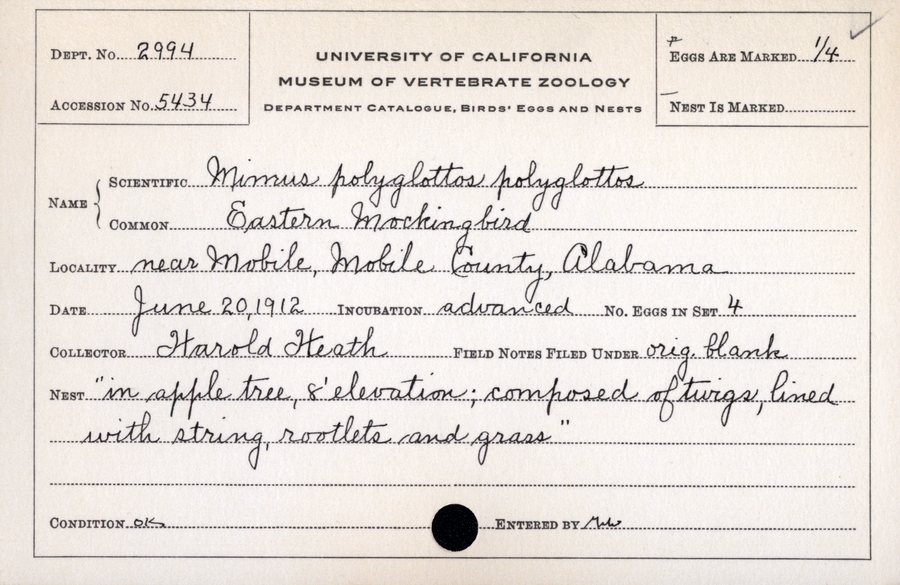 Dept. No. 2994
Accession No. 5434
UNIVERSITY OF CALIFORNIA
MUSEUM OF VERTEBRATE ZOOLOGY
Department Catalogue, Birds' Eggs and Nests
Eggs Are Marked 1/4
Nest Is Marked
Name
Scientific Mimus polyglottos polyglottos
Common Eastern Mockingbird
Locality near Mobile, Mobile County, Alabama
Date June 20, 1912 Incubation advanced No. Eggs in Set 4
Collector Harold Heath Field Notes Filed Under orig. blank
Nest "in apple tree, 8' elevation; composed of twigs, lined
with string, rootlets and grass"
Condition OK Entered by